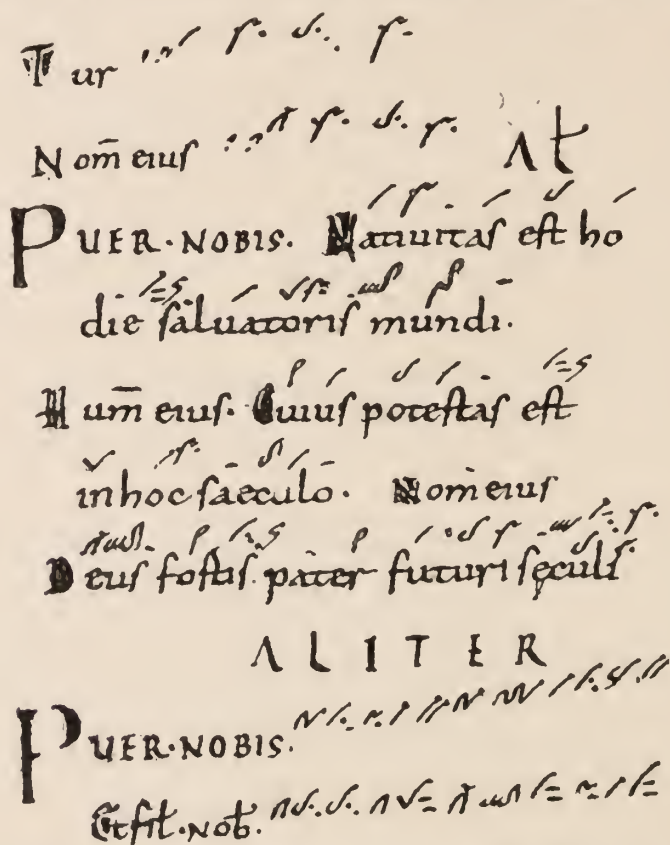 Tur
Nom̄ eiuſ At
PUER·NOBIS. Natiuitaſ eſt ho
die ſaluatoriſ mundi.
Hum̄ eiuſ. Cuiuſ poteſtaſ eſt
inhoc ſaeculo. Nom̄ eiuſ
Deuſ fortiſ. pater futuri ſęculi
ALITER
PUER·NOBIS.
Et fil·Nob.